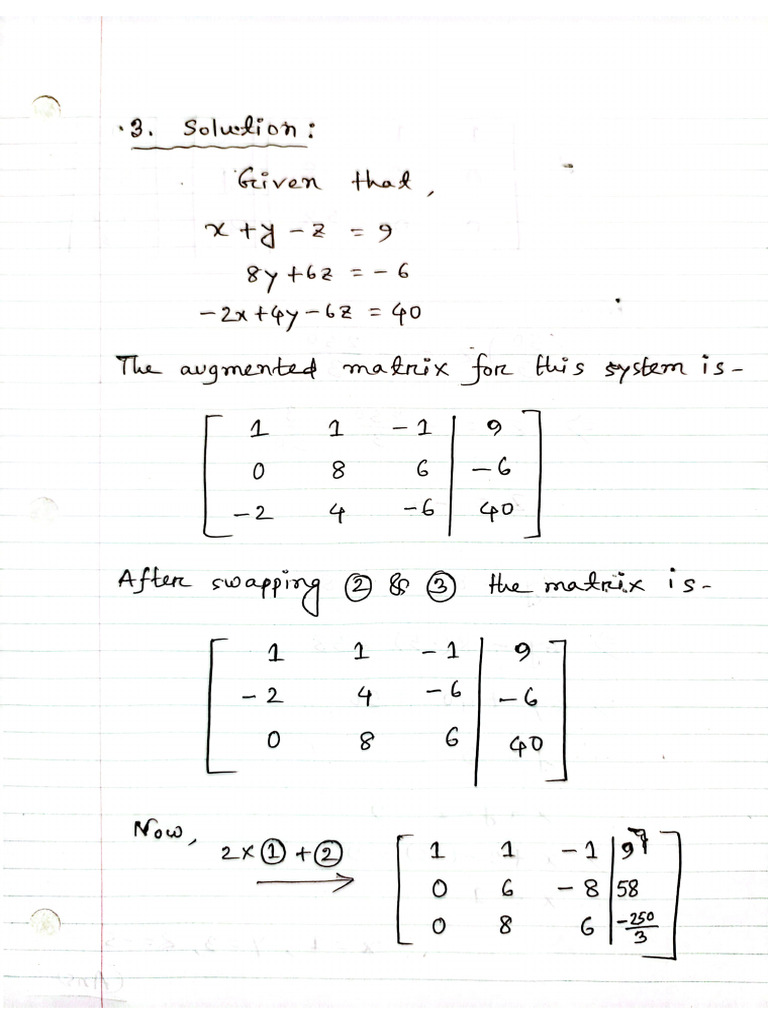 3. Solution:
Given that,
x + y - z = 9
8y + 6z = -6
-2x + 4y - 6z = 40
The augmented matrix for this system is -
1 1 -1 | 9
0 8 6 | -6
-2 4 -6 | 40
After swapping ② & ③ the matrix is -
1 1 -1 | 9
-2 4 -6 | -6
0 8 6 | 40
Now,
2 × ① + ② →
1 1 -1 | 9
0 6 -8 | 58
0 8 6 | -250/3